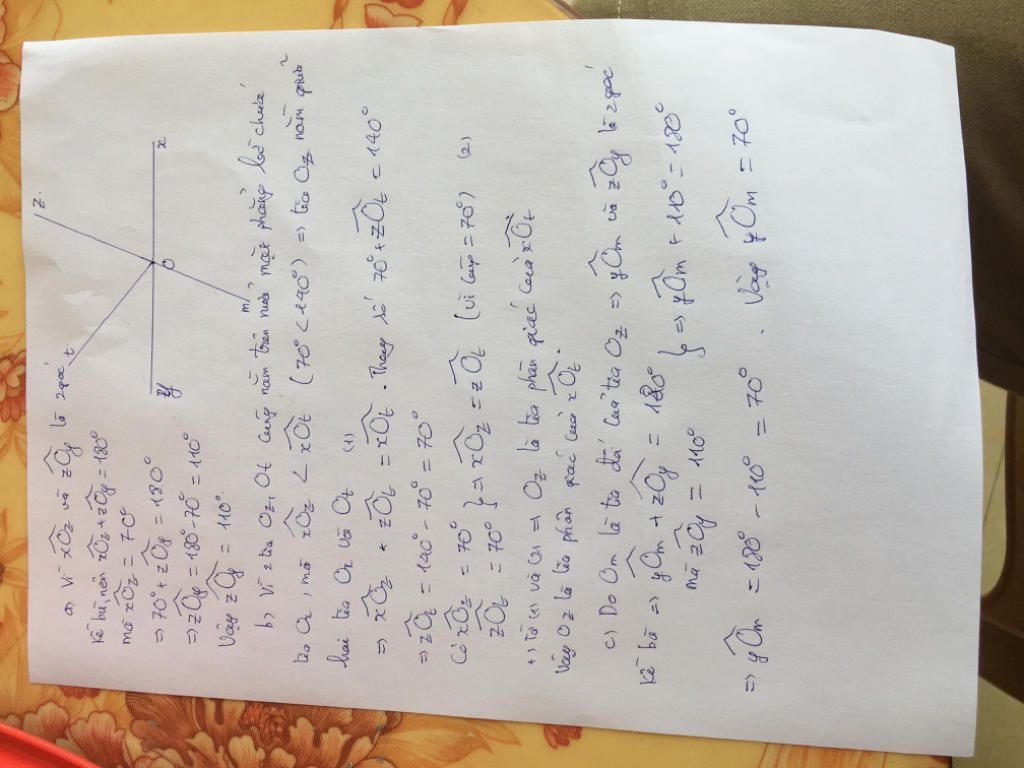 z
t
x
O
y
m
a) Vì xOz và zOy là 2 góc
kề bù, nên xOz + zOy = 180°
mà xOz = 70°
=> 70° + zOy = 180°
=> zOy = 180° - 70° = 110°
Vậy zOy = 110°
b) Vì 2 tia Oz, Ot cùng nằm trên nửa mặt phẳng bờ chứa
tia Ox, mà xOz < xOt (70° < 140°) => tia Oz nằm giữa
hai tia Ox và Ot (1)
=> xOz + zOt = xOt. Thay số 70° + zOt = 140°
=> zOt = 140° - 70° = 70°
Có xOz = 70° } => xOz = zOt (vì cùng = 70°) (2)
zOt = 70°
+) Từ (1) và (2) => Oz là tia phân giác của xOt
Vậy Oz là tia phân giác của xOt.
c) Do Om là tia đối của tia Oz => yOm và zOy là 2 góc
kề bù => yOm + zOy = 180° } => yOm + 110° = 180°
mà zOy = 110°
=> yOm = 180° - 110° = 70°. Vậy yOm = 70°